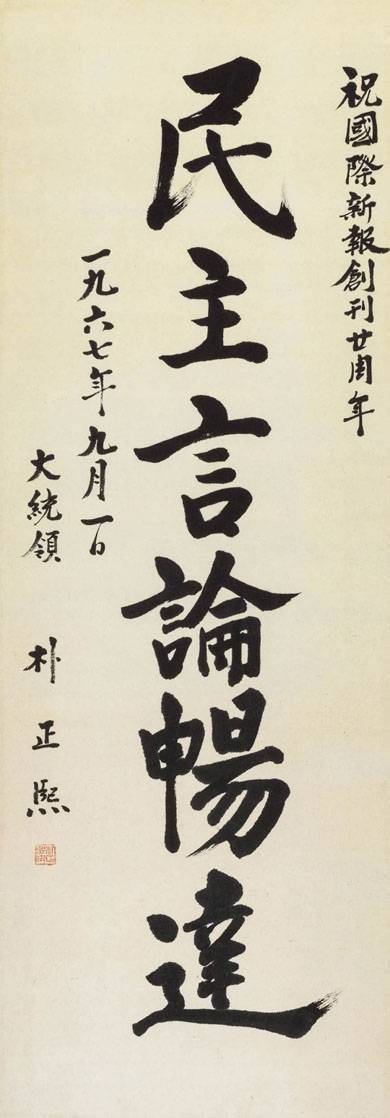 祝國際新報創刊廿周年
民主言論暢達
一九六七年九月一日
大統領 朴正熙